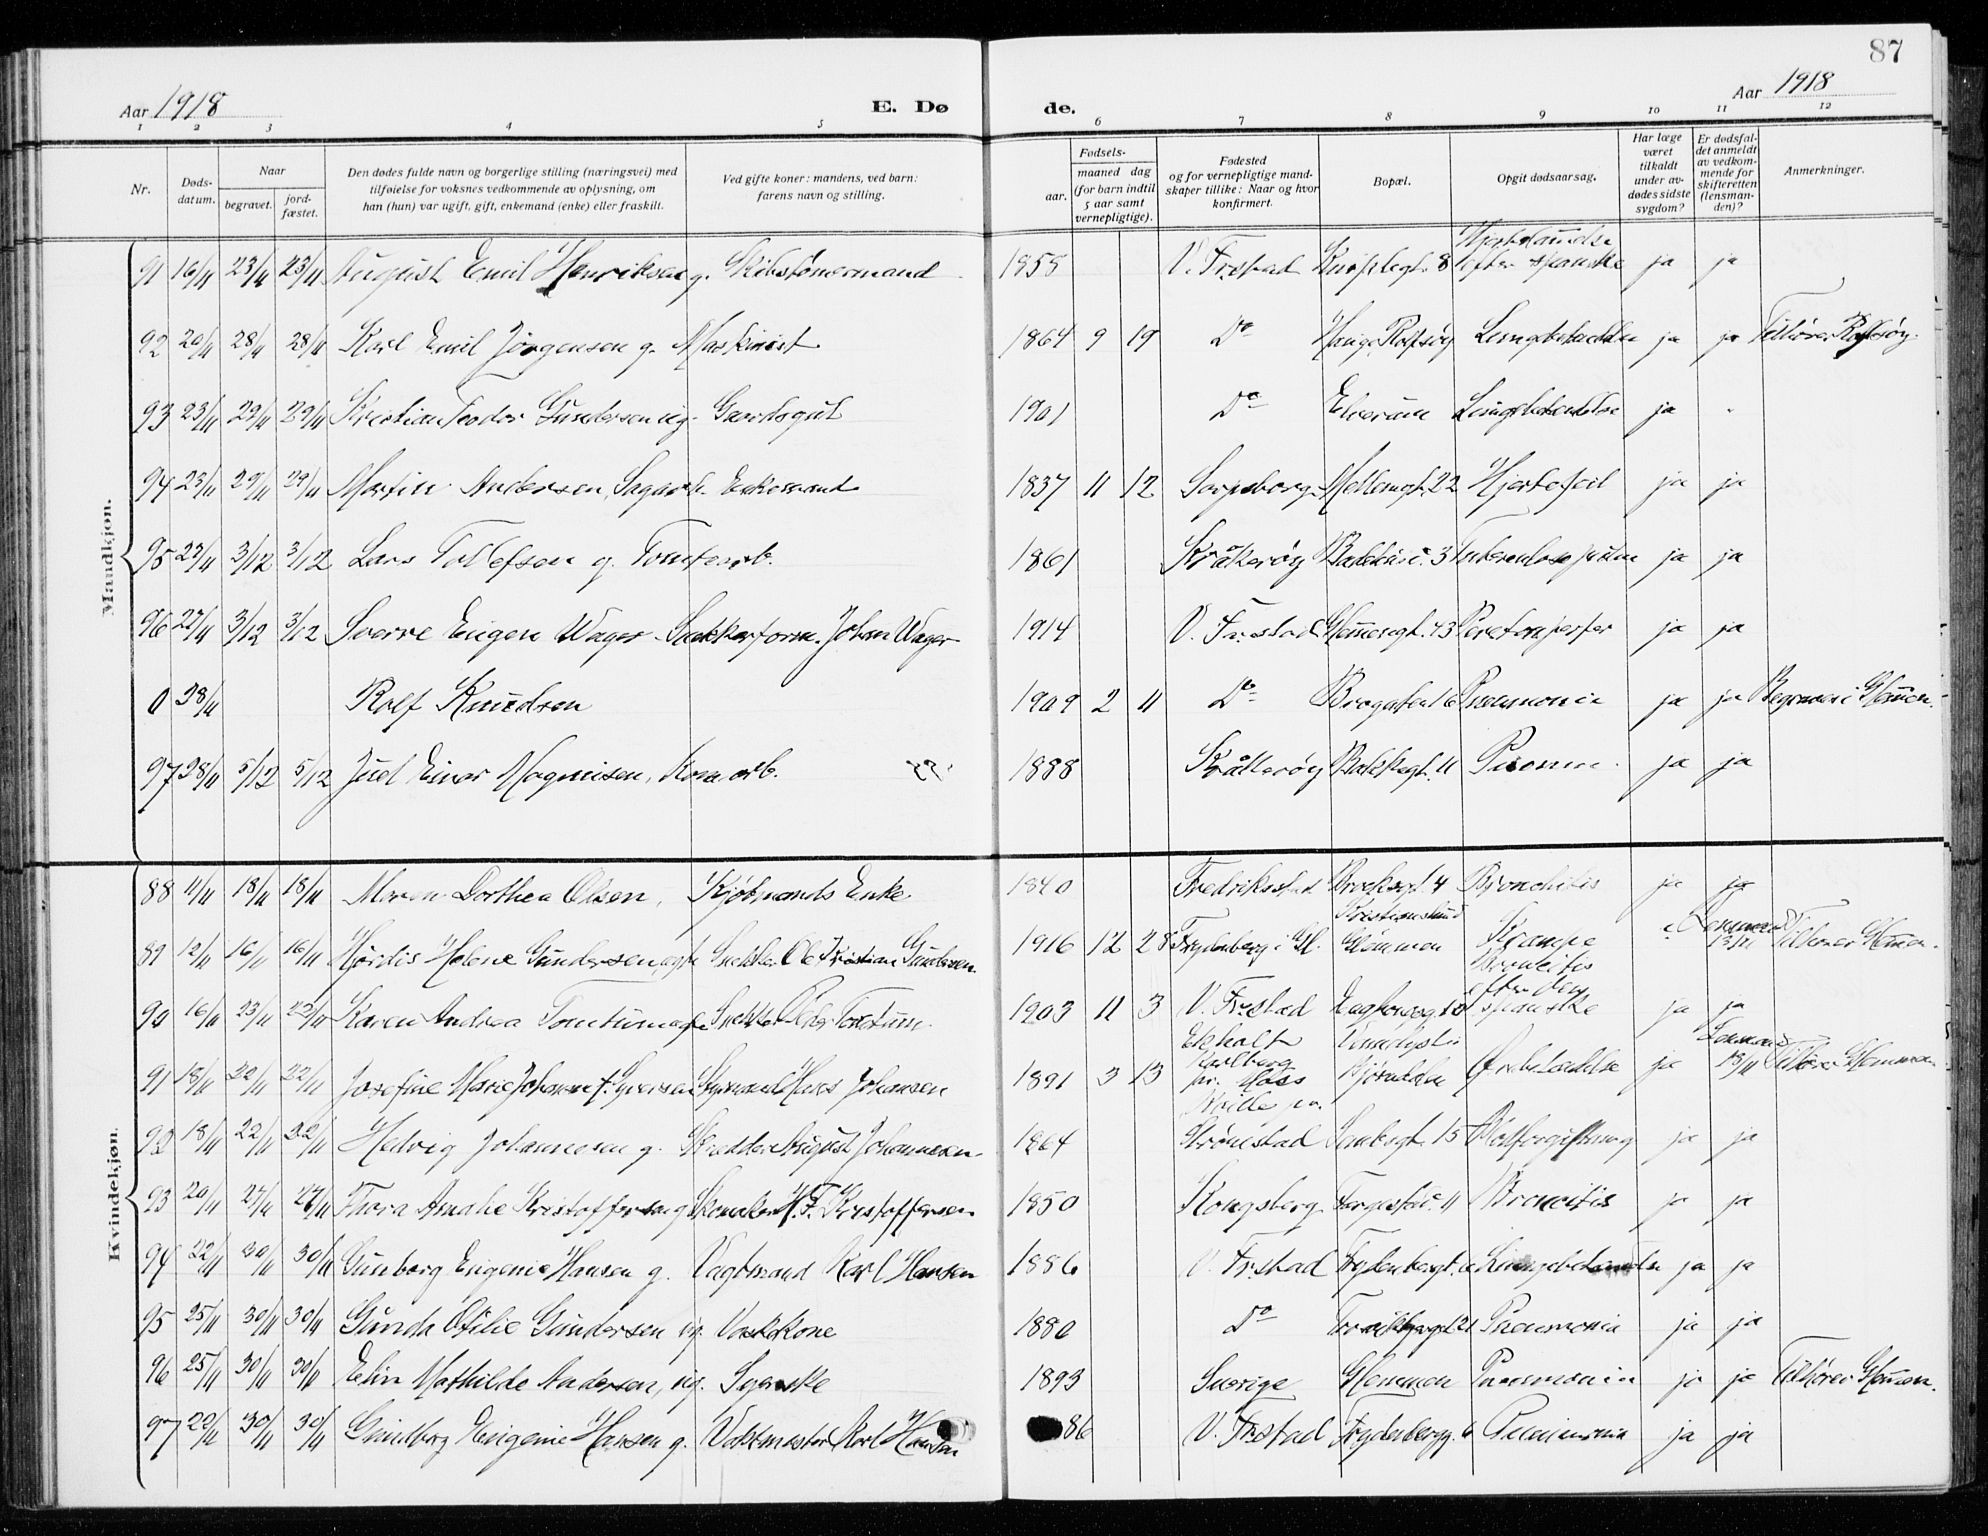 87
Aar 1918 E. Dø de. Aar 1918
1 2 3 4 5 6 7 8 9 10 11 12
Nr. Døds-datum. Naar begravet. jord-fæstet. Den dødes fulde navn og borgerlige stilling (næringsvei) med tilføielse for voksnes vedkommende av oplysning, om han (hun) var ugift, gift, enkemand (enke) eller fraskilt. Ved gifte koner: mandens, ved barn: farens navn og stilling. Fødsels- aar. maaned dag (for barn indtil 5 aar samt vernepligtige). Fødested og for vernepligtige mandskaper tillike: Naar og hvor konfirmert. Bopæl. Opgit dødsaarsag. Har læge været tilkaldt under av-dødes sidste sygdom? Er dødsfal-det anmeldt av vedkom-mende for skifteretten (lensman-den)? Anmerkninger.
Mandkjøn.
91 16/11 23/11 23/11 August Emil Henriksen g. Skibstømermand 1855 V. Fr.stad 8 efter spanske ja ja
92 20/11 28/11 28/11 Karl Emil Jørgensen g. Maskinist 1864 9 19 Do Hauge, Rolfsøy Lungebetændelse ja ja Tilhører Rolfsøy.
93 23/11 29/11 29/11 Kristian Teodor Gundersen ug. Gaardsgut 1901 Do Elverum Lungebetændelse ja
94 23/11 29/11 29/11 Martin Andersen, Sagarb. Enkemand 1837 11 12 Sarpsborg Mellemgt. 22 Hjertefeil ja ja
95 27/11 3/12 3/12 Lars Tollefsen g. Tomtearb. 1861 Kråkerøy 3 ja ja
96 27/11 3/12 3/12 Sverre Eugen Wager Snekkerform. Johan Wager 1914 V. Fr.stad 43 ja ja
0 28/11 Rolf Knudsen 1909 2 11 Do Brogaten 16 Pneumonie ja ja Begraven i Glemmen.
97 28/11 5/12 5/12 Juel Einar Magnusen, Kornarb. 1888 Kråkerøy Bakkegt. 11 ja ja
Kvindekjøn.
88 11/11 18/11 18/11 Maren Dorthea Olsen, Kjøbmands Enke 1840 Fredriksstad Brocksgt. 4 Bronchitis ja ja
89 12/11 16/11 16/11 Hjørdis Helene Gundersen, Snekker Ole Kristian Gundersen 1916 12 28 Frydenberg i Gl. Kristianslund Glemmen Krampe Lensmand 13/11 Tilhører Glemmen.
90 16/11 23/11 23/11 Karen Andrea Snekker Peder 1903 11 3 V. Fr.stad Broncitis efter den spanske ja ja
91 18/11 22/11 22/11 Josefine Marie Johansen f. Syversen Styrmand Hans Johansen 1891 3 13 Ekholt Karlberg pr. Moss ja Lensmand 18/11 Tilhører Glemmen
92 18/11 22/11 22/11 Hedvig Johannesen g. Skrædder August Johannesen 1864 Strømstad 15 Blodforgiftning ja ja
93 20/11 27/11 27/11 Thora Amalie Kristoffersen g. Skomaker H. F. Kristoffersen 1850 Kongsberg 11 Broncitis ja ja
94 22/11 30/11 30/11 Gunborg Eugenie Hansen g. Vagtmand Karl Hansen 1886 V. Fr.stad Frydenbergt. 6 Lungebetændelse ja ja
95 25/11 30/11 30/11 Gunda Otilie Gundersen ug. Vaskekone 1880 Do 21 Pneumonia ja ja
96 25/11 30/11 30/11 Elin Mathilde Andersen, ug. Syerske 1893 Sverige Glemmen Pneumonia ja ja Tilhører Glemmen.
97 22/11 30/11 30/11 Gunborg Eugenie Hansen g. Vaktmester Karl Hansen 86 V. Fr.stad Frydenbergg. 6 Pneumonia ja ja